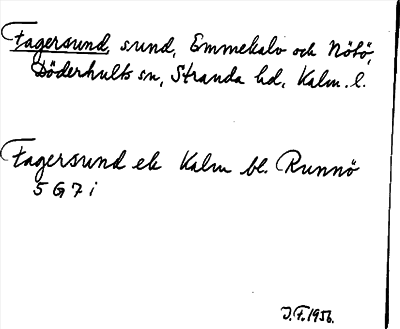 Fagersund, sund, Emmekalv och Nötö,
Döderhults sn, Stranda hd, Kalm. l.
Fagersund ek Kalm bl. Runnö
5 G 7 i
J.F. 1956.